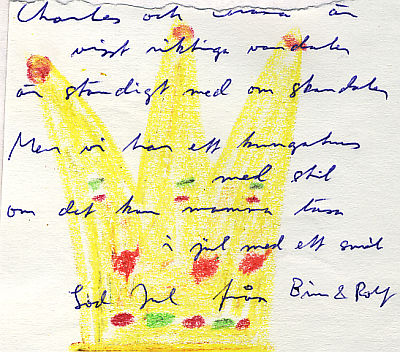 Charles och Diana är
visst riktiga vandaler
är ständigt med om skandaler
Men vi har ett kungahus
med stil
om det kan mamma läsa
i jul med ett smil
God Jul från Bim & Rolf